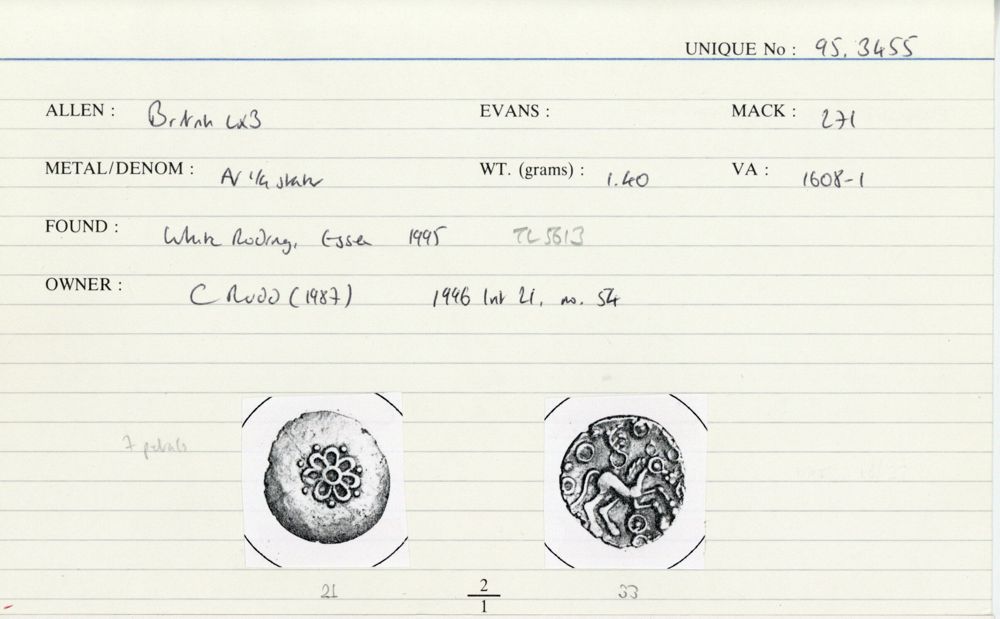 UNIQUE No : 95.3455
ALLEN : British LX3 EVANS : MACK : 271
METAL/DENOM : AV 1/4 stater WT. (grams) : 1.40 VA : 1608-1
FOUND : White Roding, Essex 1995 TL5613
OWNER : C Rudd (1987) 1996 list 21, no. 54
7 petals
21 2/1 33